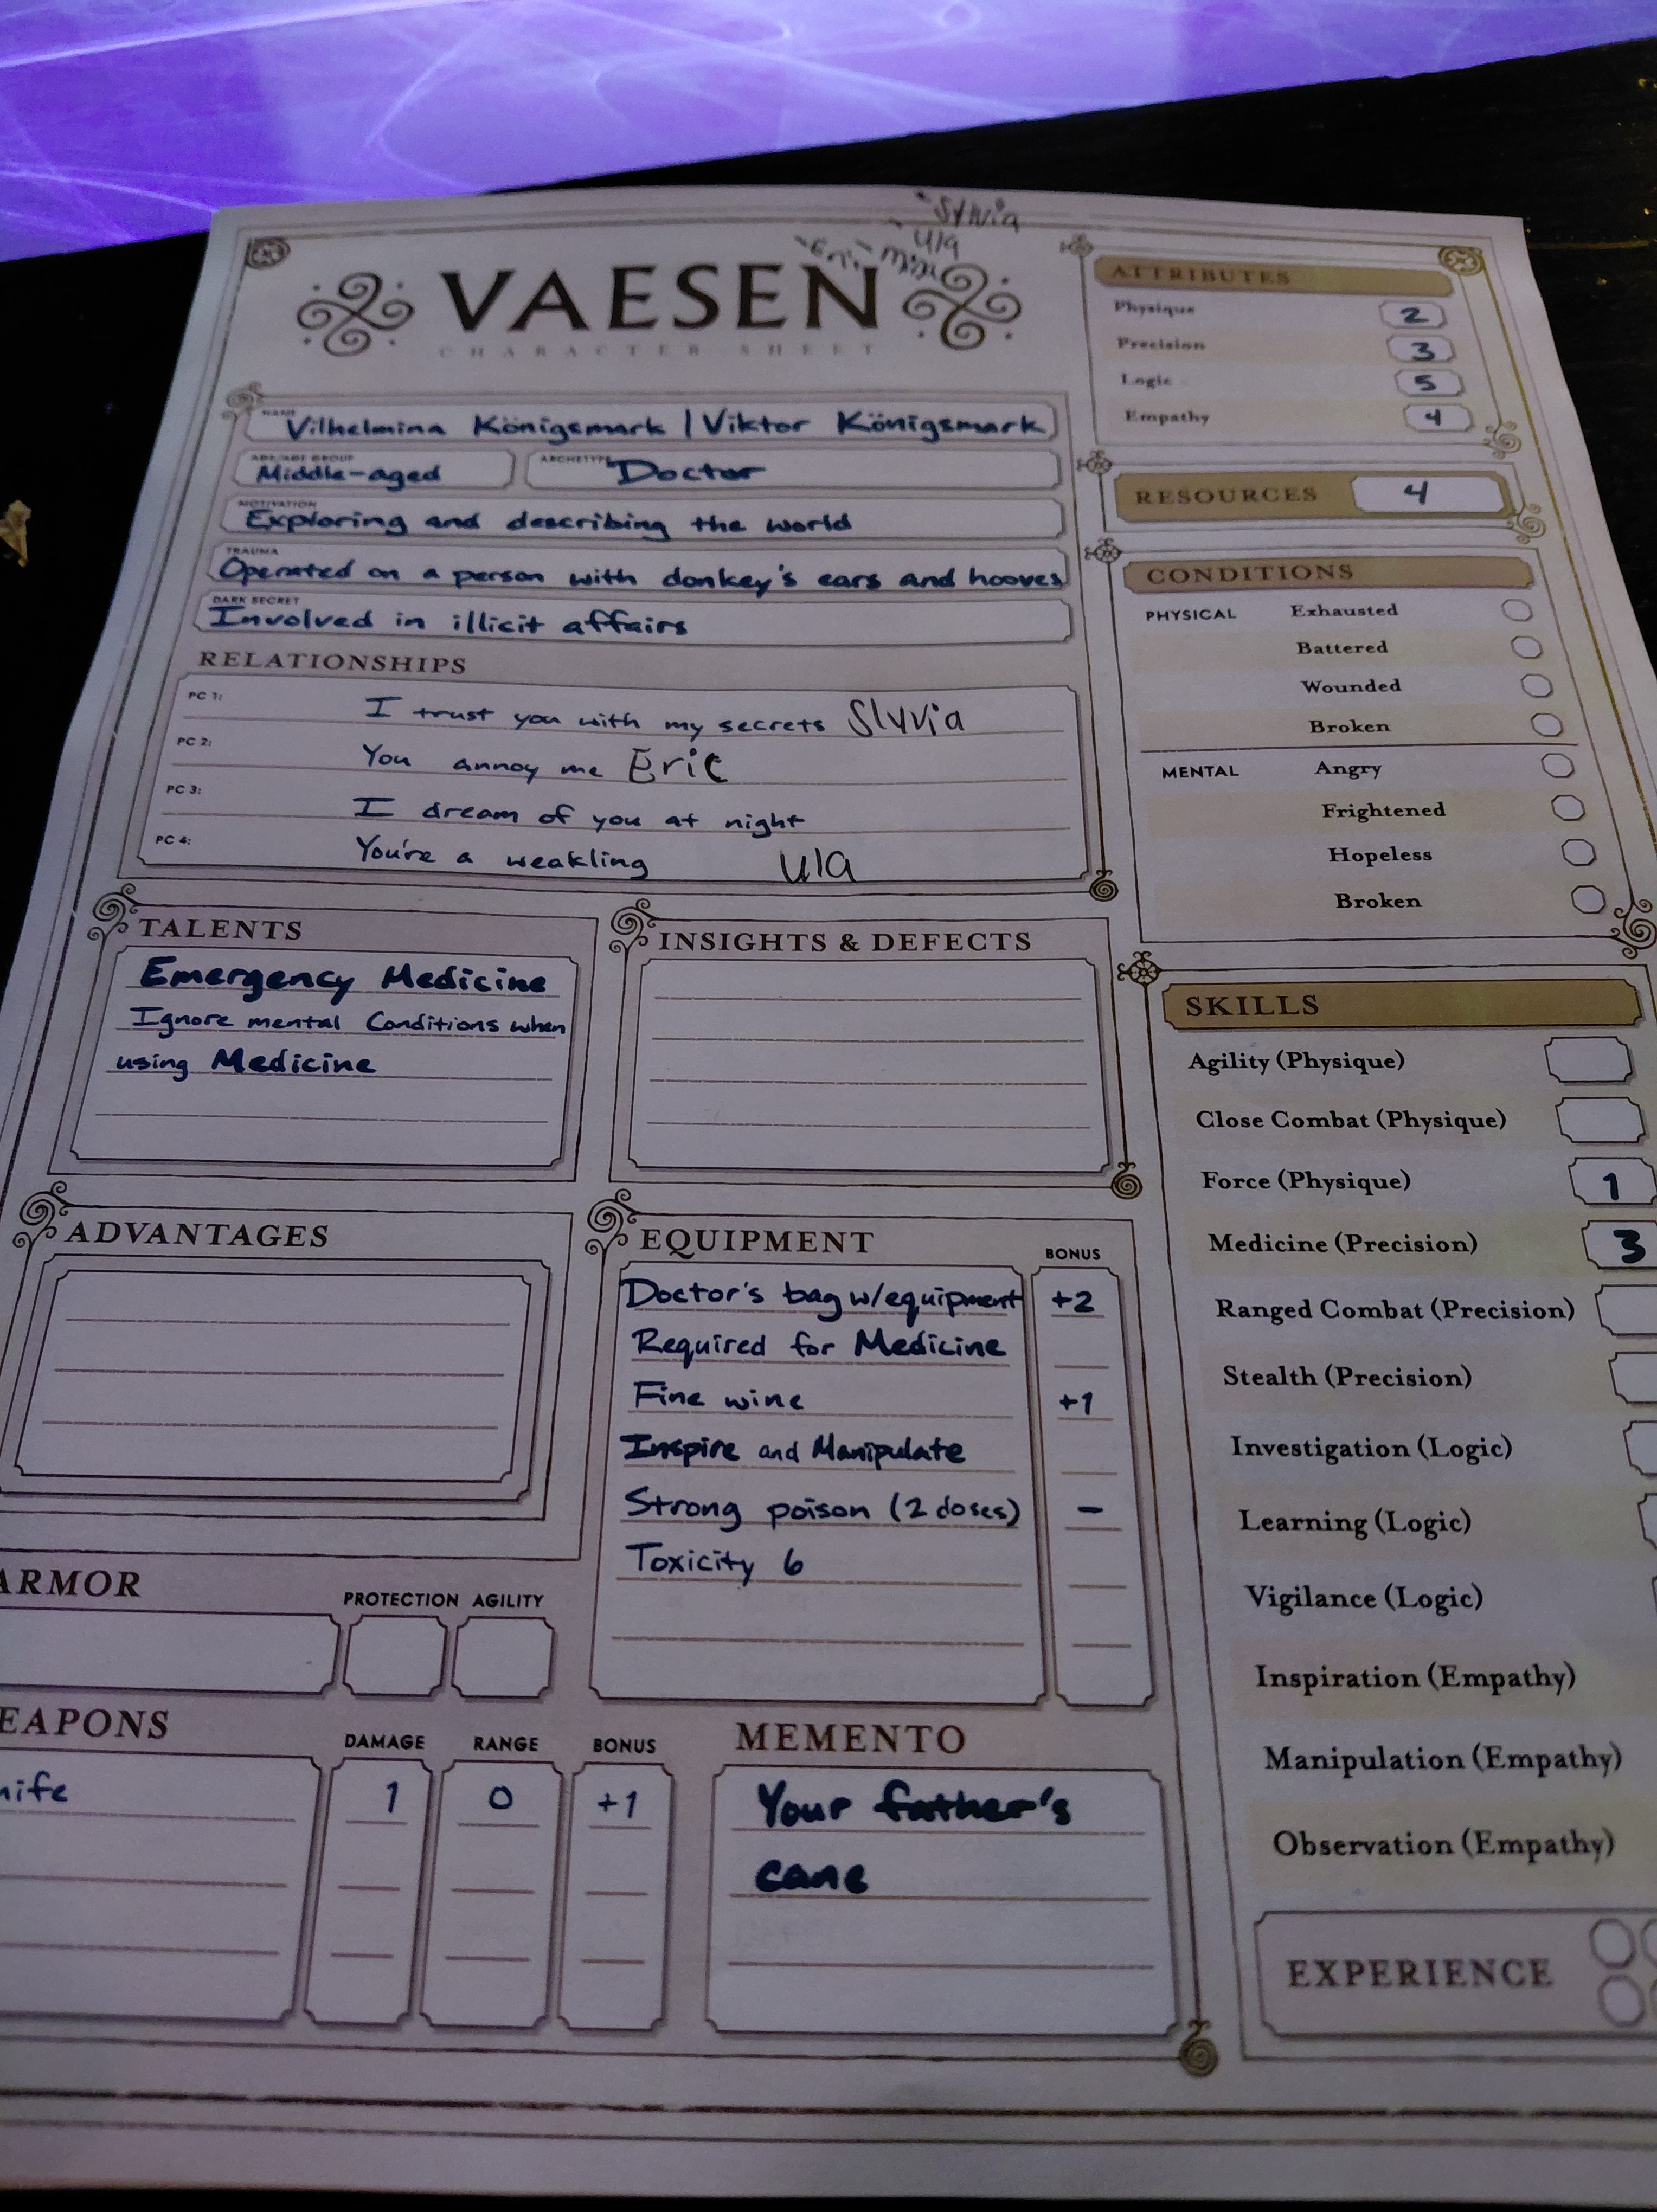 Sylvia
Ula
VAESEN
CHARACTER SHEET
NAME
Vilhelmina Königsmark | Viktor Königsmark
AGE/AGE GROUP
Middle-aged
ARCHETYPE
Doctor
MOTIVATION
Exploring and describing the world
TRAUMA
Operated on a person with donkey's ears and hooves
DARK SECRET
Involved in illicit affairs
RELATIONSHIPS
PC 1: I trust you with my secrets Slyvia
PC 2: You annoy me Eric
PC 3: I dream of you at night
PC 4: You're a weakling Ula
TALENTS
Emergency Medicine
Ignore mental Conditions when
using Medicine
INSIGHTS & DEFECTS
ADVANTAGES
EQUIPMENT BONUS
Doctor's bag w/equipment +2
Required for Medicine
Fine wine +1
Inspire and Manipulate
Strong poison (2 doses) –
Toxicity 6
ARMOR PROTECTION AGILITY
EAPONS DAMAGE RANGE BONUS
nife 1 0 +1
MEMENTO
Your father's
cane
ATTRIBUTES
Physique 2
Precision 3
Logic 5
Empathy 4
RESOURCES 4
CONDITIONS
PHYSICAL Exhausted
Battered
Wounded
Broken
MENTAL Angry
Frightened
Hopeless
Broken
SKILLS
Agility (Physique)
Close Combat (Physique)
Force (Physique) 1
Medicine (Precision) 3
Ranged Combat (Precision)
Stealth (Precision)
Investigation (Logic)
Learning (Logic)
Vigilance (Logic)
Inspiration (Empathy)
Manipulation (Empathy)
Observation (Empathy)
EXPERIENCE